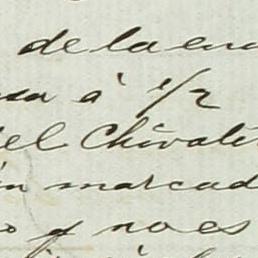 de la en
a á 1/2
del Chivali
n marcad
o y no es